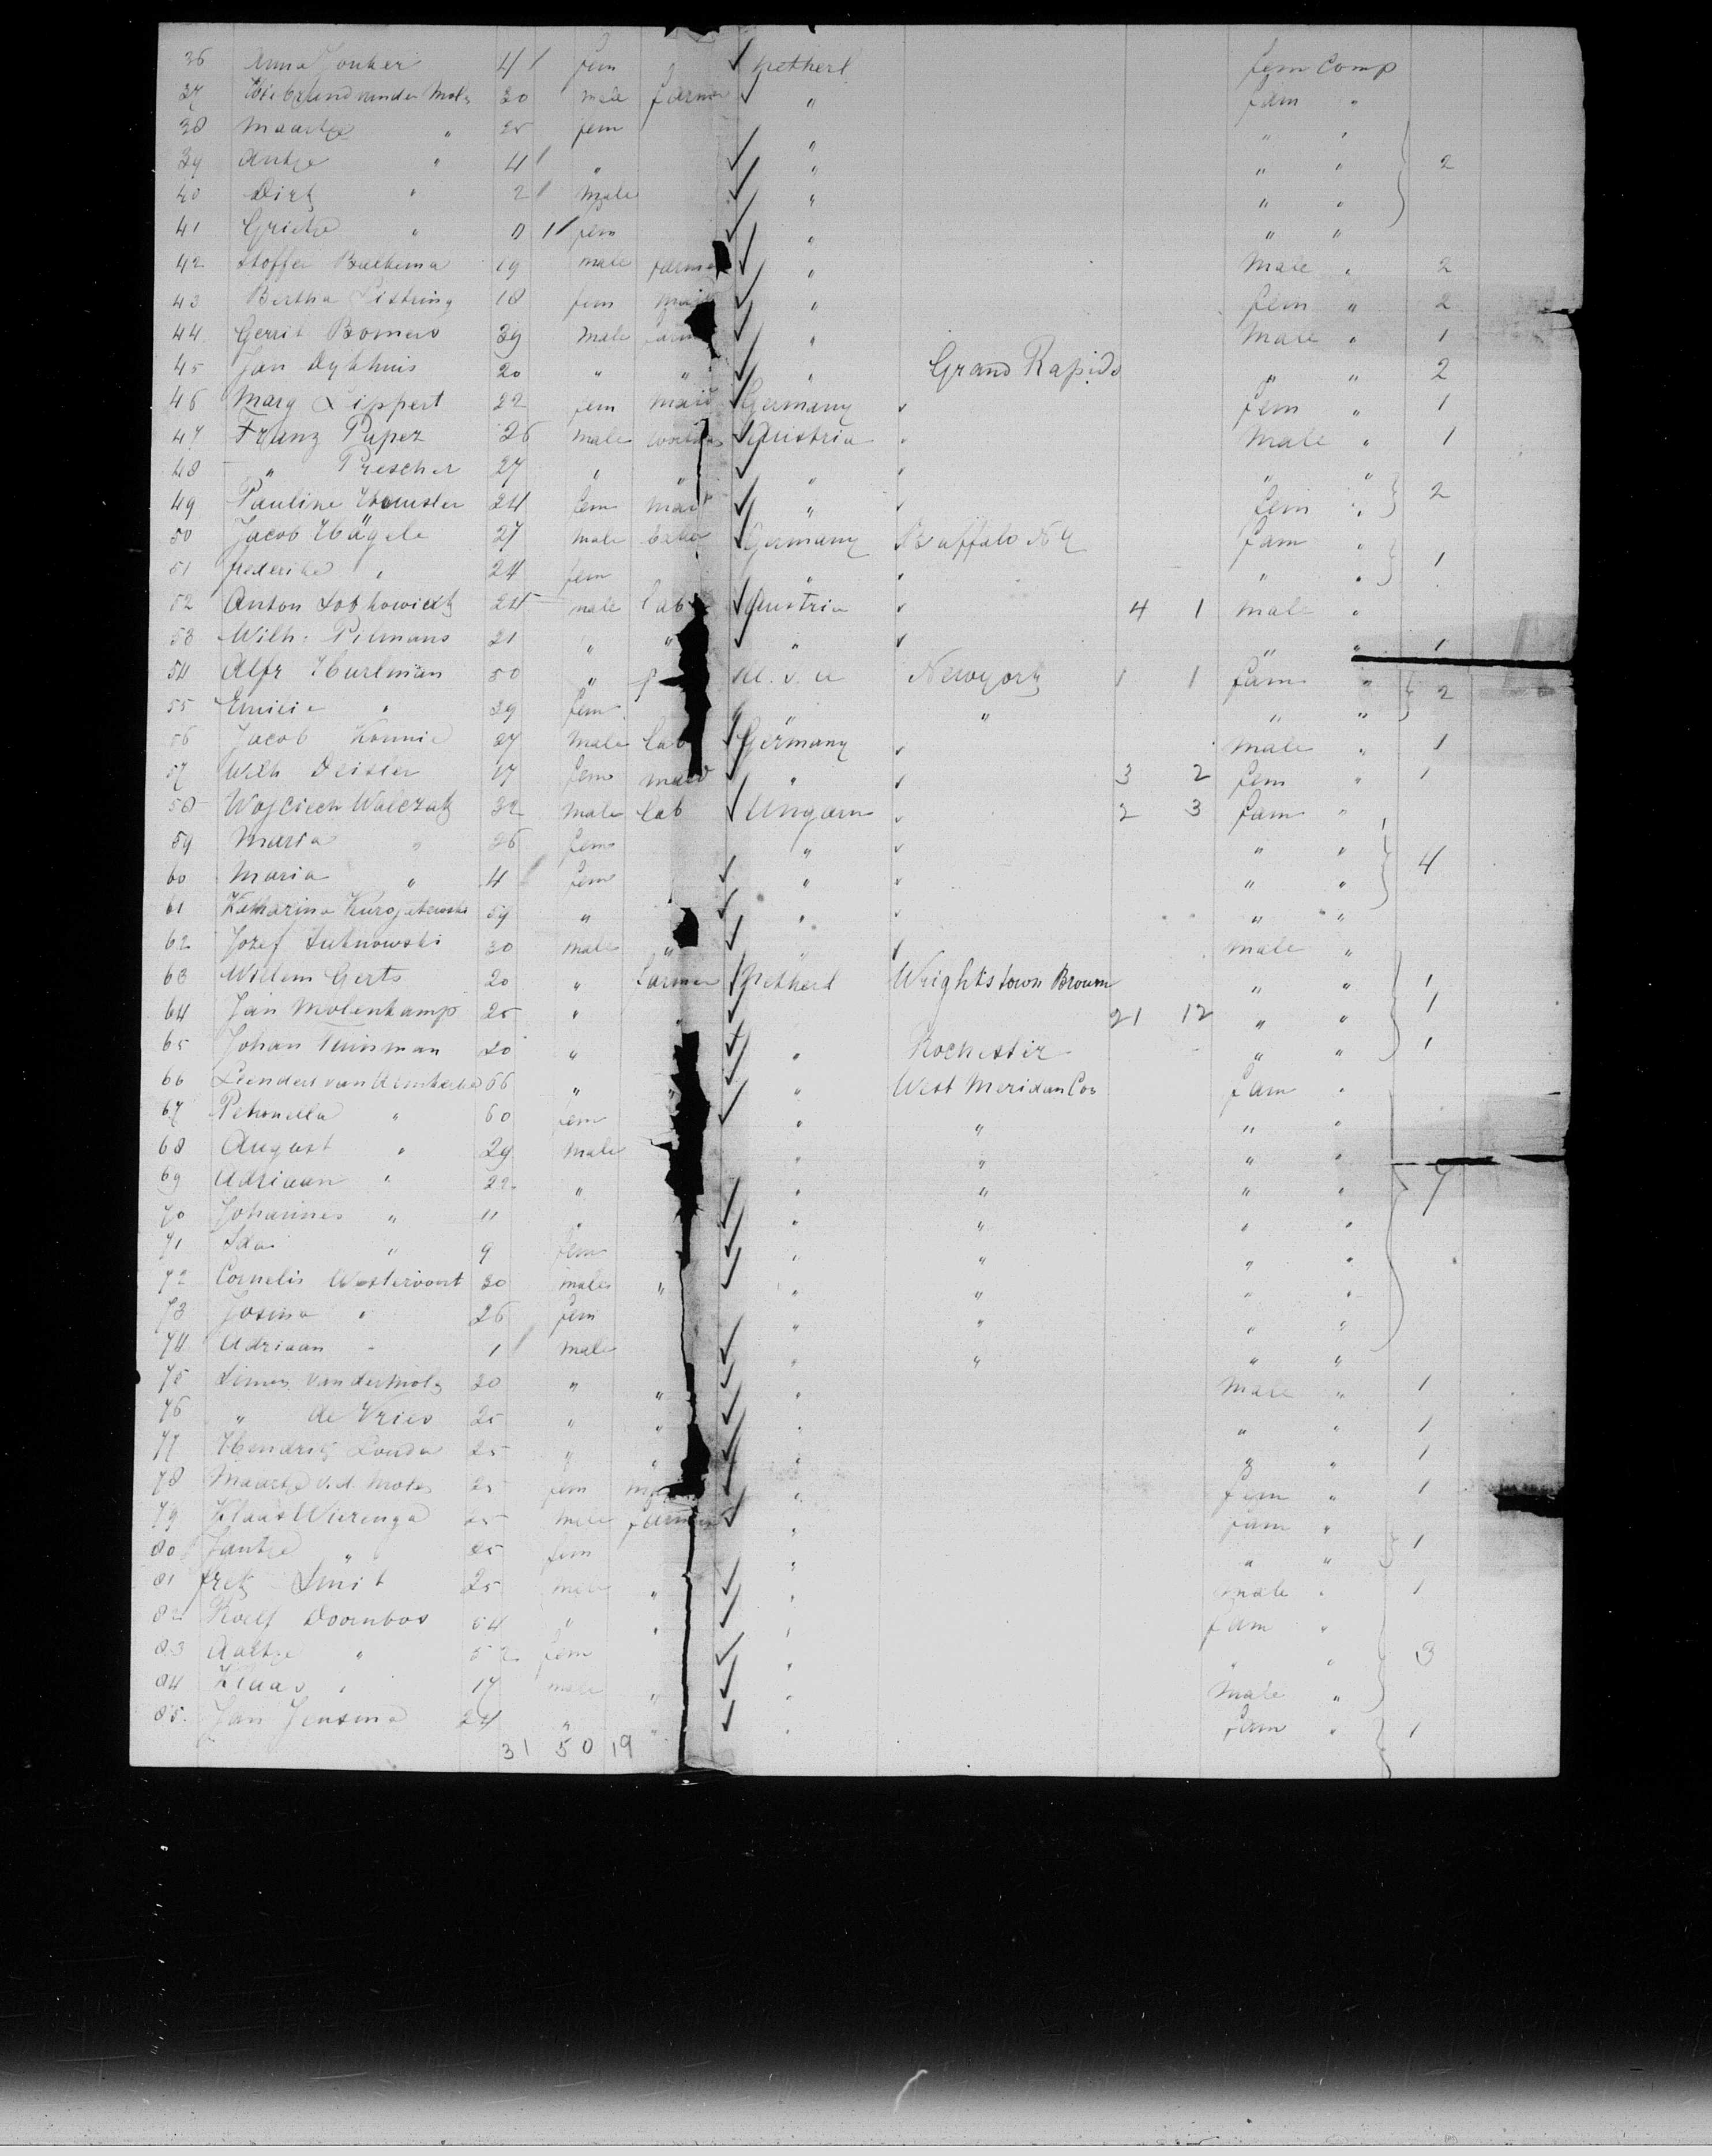 36 Anna Jonker 4 / fem Netherl fem Comp
37 Wiebrand vander Molz 20 male farmer " fam "
38 Maartje " 25 fem " " "
39 Antje " 4 / " " " " 2
40 Dirk " 2 / male " " "
41 Grietje " 0 11 fem " " "
42 Stoffer Bultema 19 male farmer " Male " 2
43 Bertha 18 fem " fem " 2
44 Gerrit Bomers 39 male " Male " 1
45 Jan Dykhuis 20 " " " Grand Rapids " " 2
46 Marg Lippert 22 fem maid Germany fem " 1
47 Franz Papez 26 male Austria Male " 1
48 " Prescher 27 " " " " "
49 Pauline 24 fem " fem " 2
50 Jacob Hägele 27 male Germany Buffalo N Y fam "
51 frederike " 24 fem " " " 1
52 Anton Lobkowicz 24 male lab Austria 4 1 male "
53 Wilh. Pilmans 21 " " " " " 1
54 Alfr Hurlman 50 " U. S. A Newyork 1 1 fam "
55 Emilie " 29 fem " " " " 2
56 Jacob 27 Male lab Germany male " 1
57 Wilh Deister 17 fem maid " 3 2 fem " 1
58 Wojciech Walczak 32 male lab Ungarn 2 3 fam "
59 Maria " 26 fem " " "
60 Maria " 4 fem " " " 4
61 Katharina 59 " " " "
62 Jozef 30 male " male "
63 Willem Gerts 20 " farmer Netherl Wrightstown Broun " " 1
64 Jan Molenkamp 25 " 21 12 " " 1
65 Johan Tuinman 20 " " Rochester " " 1
66 Leendert van 66 " " West Meridan Con fam "
67 Petronella " 60 fem " " " "
68 August " 29 male " " " "
69 Adriaan " 22 " " " " " 7
70 Johannes " 11 " " " " "
71 Ida " 9 fem " " " "
72 Cornelis Westervoort 30 male " " " " "
73 Josina " 26 fem " " " "
74 Adriaan " 1 / male " " " "
75 Simon van der Molz 20 " " " male " 1
76 " de Vries 25 " " " " " 1
77 Hendrik Louda 25 " " " " " 1
78 Maartje v. d. Molen 25 fem " fem " 1
79 Klaas Wierenga 25 male farmer " fam "
80 Jantje " 25 fem " " " 1
81 frek Smit 25 male " " male " 1
82 Roelf Doornbos 54 " " " fam "
83 Aaltje " 52 fem " " " 3
84 Klaas " 17 male " " male "
85. Jan 24 " " " fam " 1
31 50 19